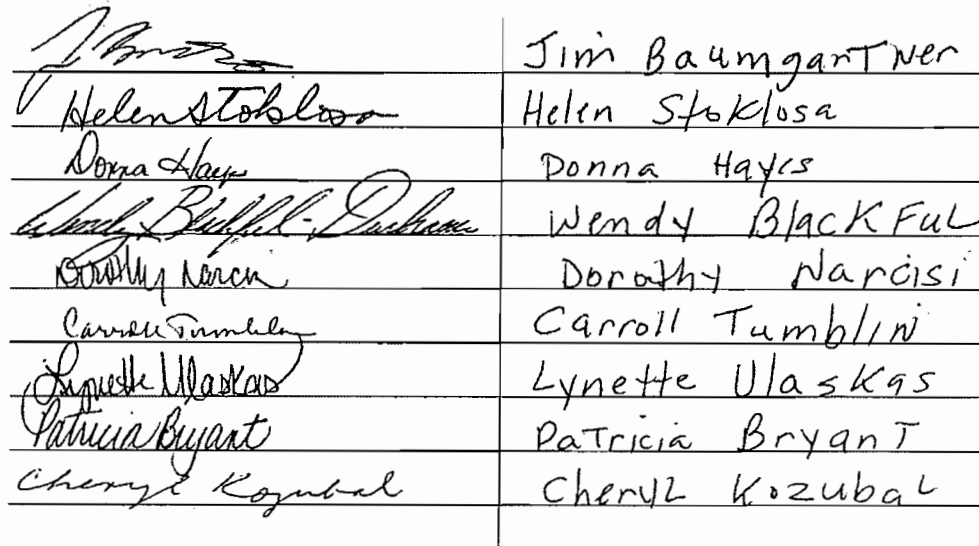 Jim BaumgarTNer
Helen Stoklosa Helen StoKlosa
Donna Hayes Donna Hayes
Wendy Blackful-Durham Wendy BlacKFuL
Dorothy Narcisi Dorathy Narcisi
Carroll Tumblin Carroll TumblIN
Lynette Ulaskas Lynette UlasKas
Patricia Bryant PaTricia BryanT
Cheryl Kozubal CherylL KozubaL